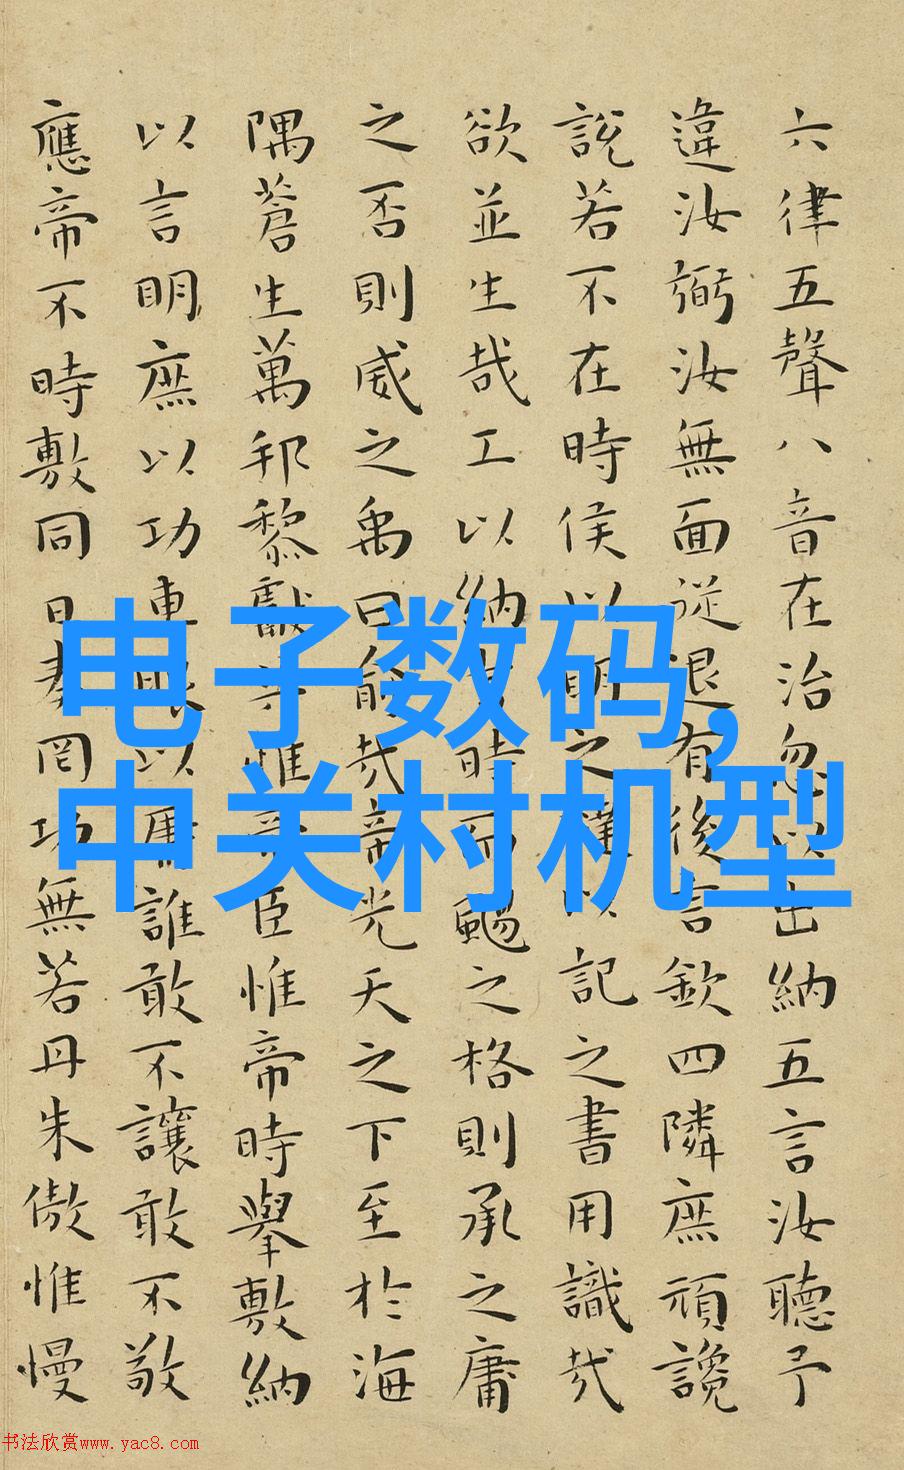 六律五聲八音在治忽以出納五言汝聽予
違汝弼汝無面從退有後言欽四隣庶頑讒
說若不在時侯以明之撻以記之書用識哉
欲並生哉工以納言時而颺之格則承之庸
之否則威之禹曰俞哉帝光天之下至於海
隅蒼生萬邦黎獻共惟帝臣惟帝時舉敷納
以言明庶以功車服以庸誰敢不讓敢不敬
應帝不時敷同日奏罔功無若丹朱傲惟慢
电子数码,
中关村机型
书法欣赏www.yac8.com